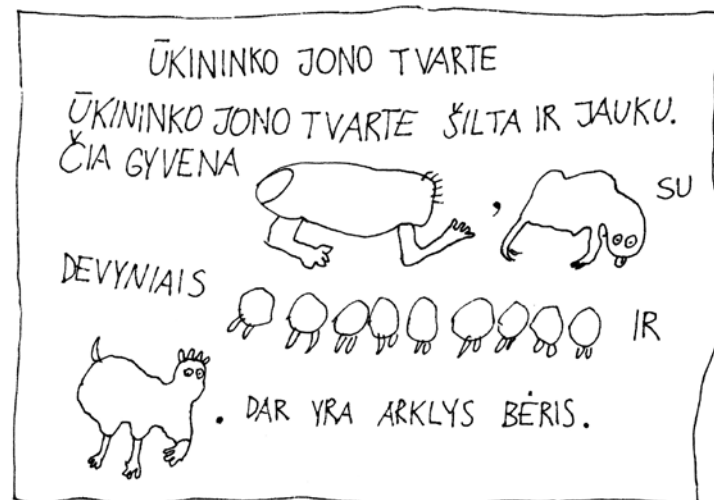 ŪKININKO JONO TVARTE
ŪKININKO JONO TVARTE ŠILTA IR JAUKU.
ČIA GYVENA , SU
DEVYNIAIS IR
. DAR YRA ARKLYS BĖRIS.